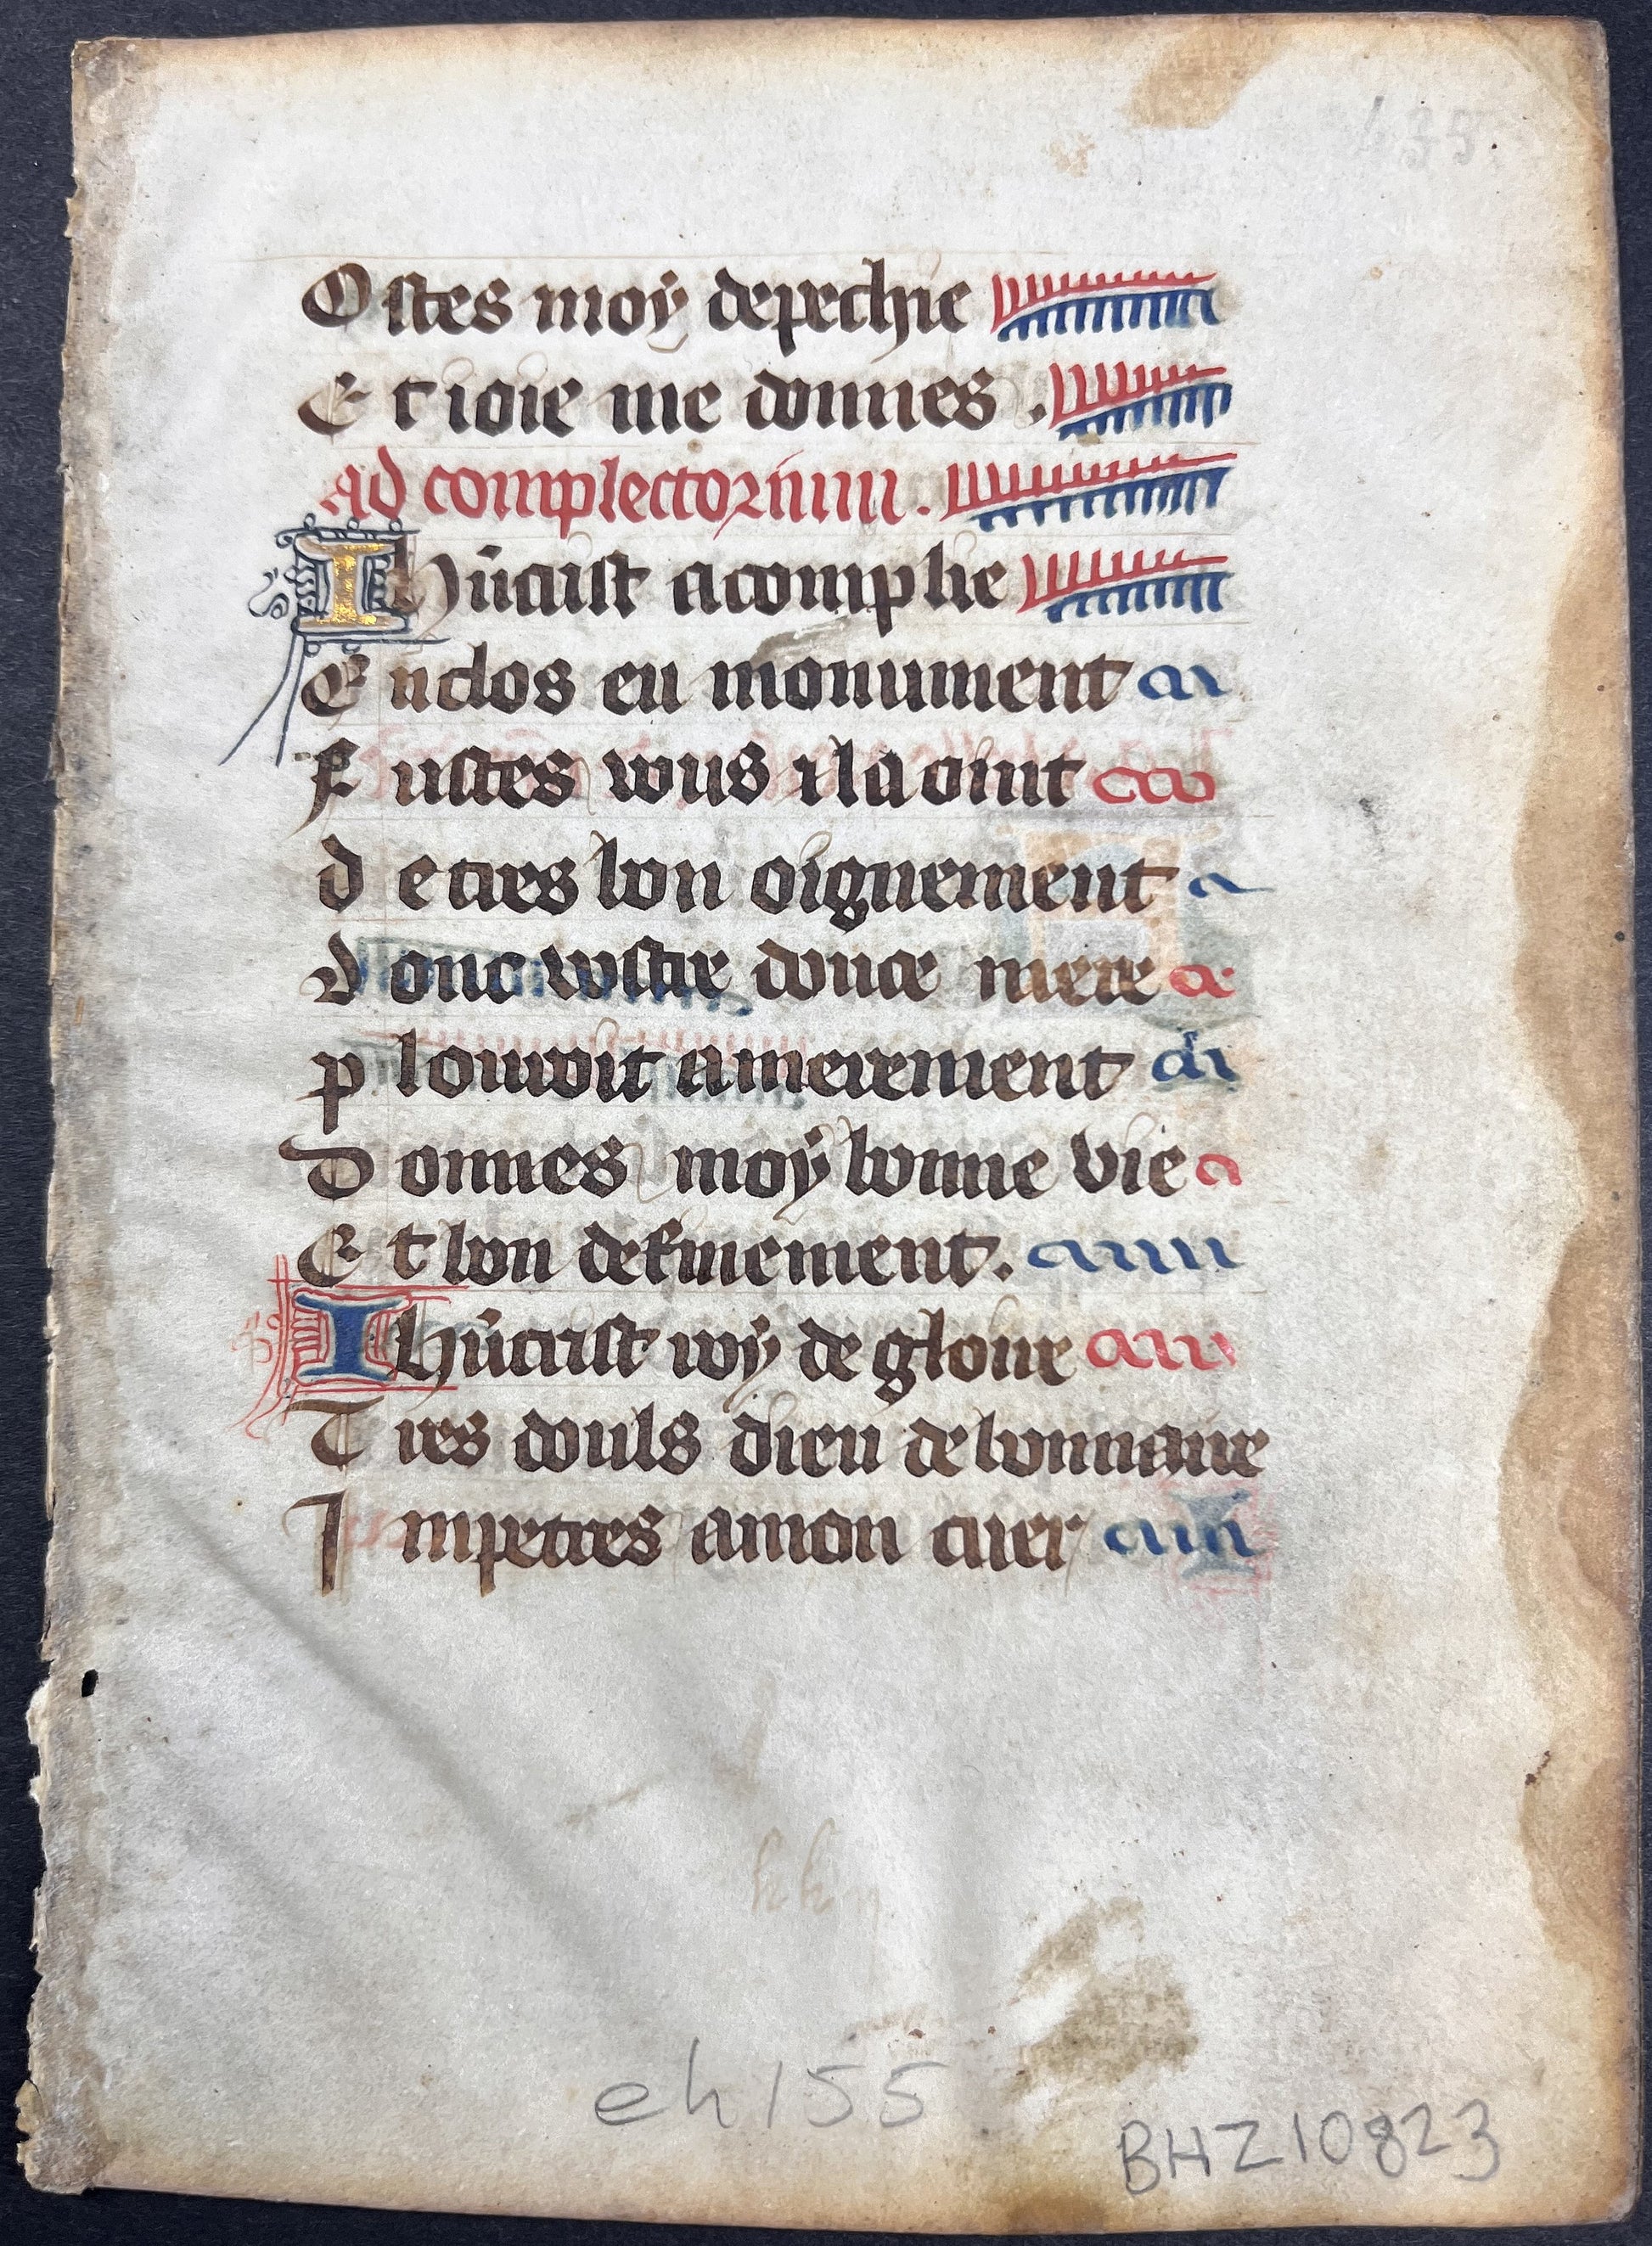 435.
Ostes moy depechie
Et ioie me donnes .
Ad complectorium .
Ihūcrist acomplie
Enclos en monument
Fustes vous il a oint
de tres bon oignement
Donc vostre douce mere
plouroit amerement
Donnes moy bonne vie
Et bon definement .
Ihūcrist roy de gloire
Tres douls dieu de bonnaire
Impetres amon cuer
eh155
BHZ10823